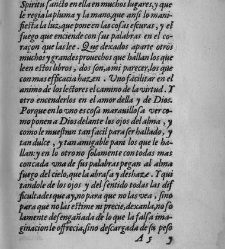 Spiritu sancto en ella en muchos lugares, y que
le regia la pluma y la mano, que ansi lo mani-
fiesta la luz que pone en las cosas oscuras, y el
fuego que enciende con sus palabras en el co-
raçon que las lee. Que dexados aparte otros
muchos y grandes prouechos que hallan los que
leen estos libros, dos son, a mi parecer, los que
con mas efficacia hazen. Uno facilitar en el
animo de los lectores el camino de la virtud. Y
otro encenderlos en el amor della y de Dios.
Porque en lo uno es cosa marauillosa ver co-
mo ponen a Dios delante los ojos del alma, y
como le muestran tan facil para ser hallado, y
tan dulce, y tan amigable para los que le ha-
llan: y en lo otro no solamente con todas mas
con cada una de sus palabras pegan al alma
fuego del cielo, que la abrasa y deshaze. Y qui
tandole de los ojos y del sentido todas las dif
ficultades que ay, no para que no las vea, sino
para que no las estime ni precie, dexanla, no so
lamente desengañada de lo que la falsa ima-
ginacion le offrecia, sino descargada de su peso
A 5 y